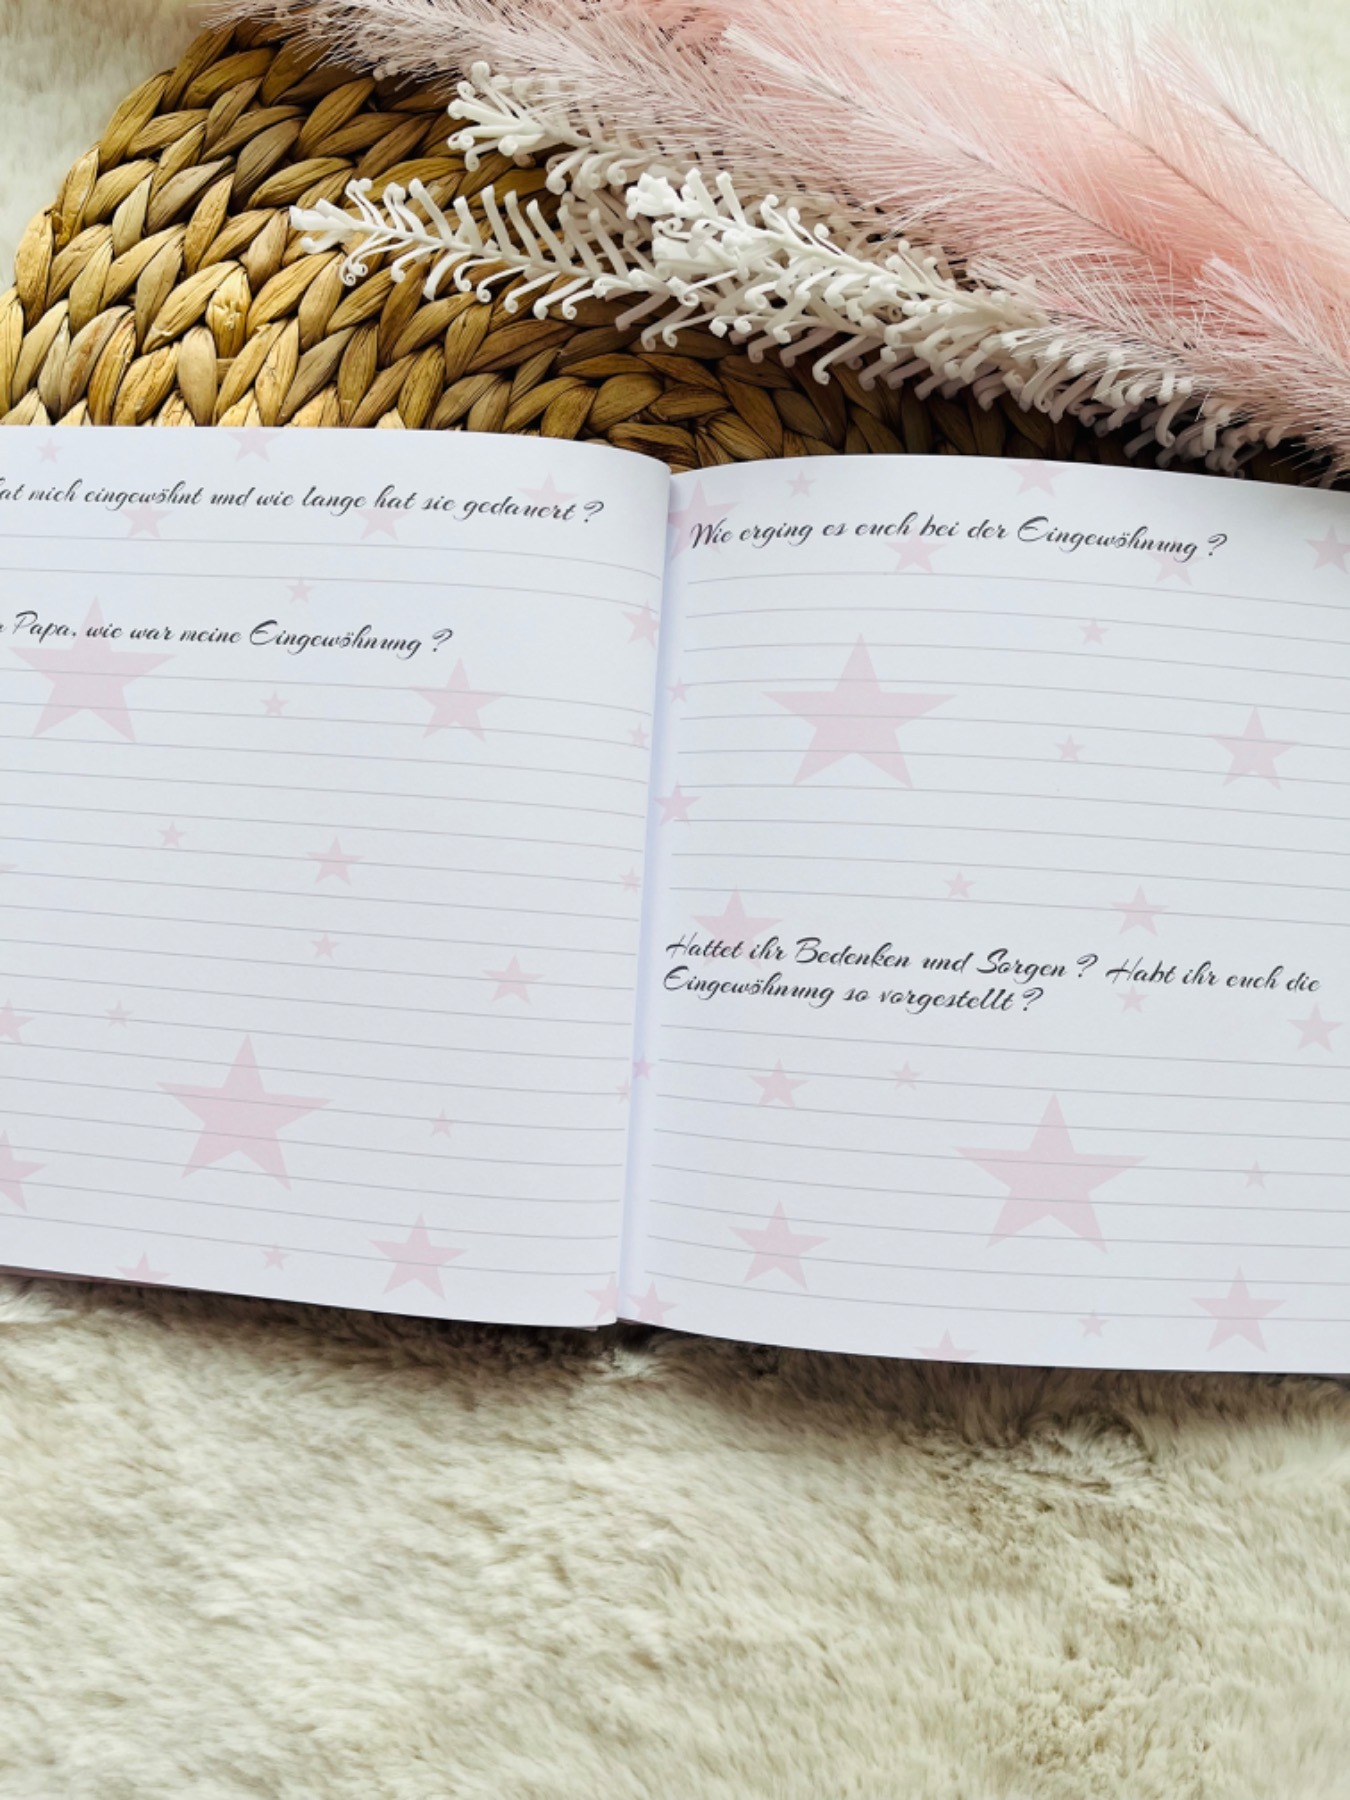 hat mich eingewöhnt und wie lange hat sie gedauert ?
Papa, wie war meine Eingewöhnung ?
Wie erging es euch bei der Eingewöhnung ?
Hattet ihr Bedenken und Sorgen ? Habt ihr euch die
Eingewöhnung so vorgestellt ?